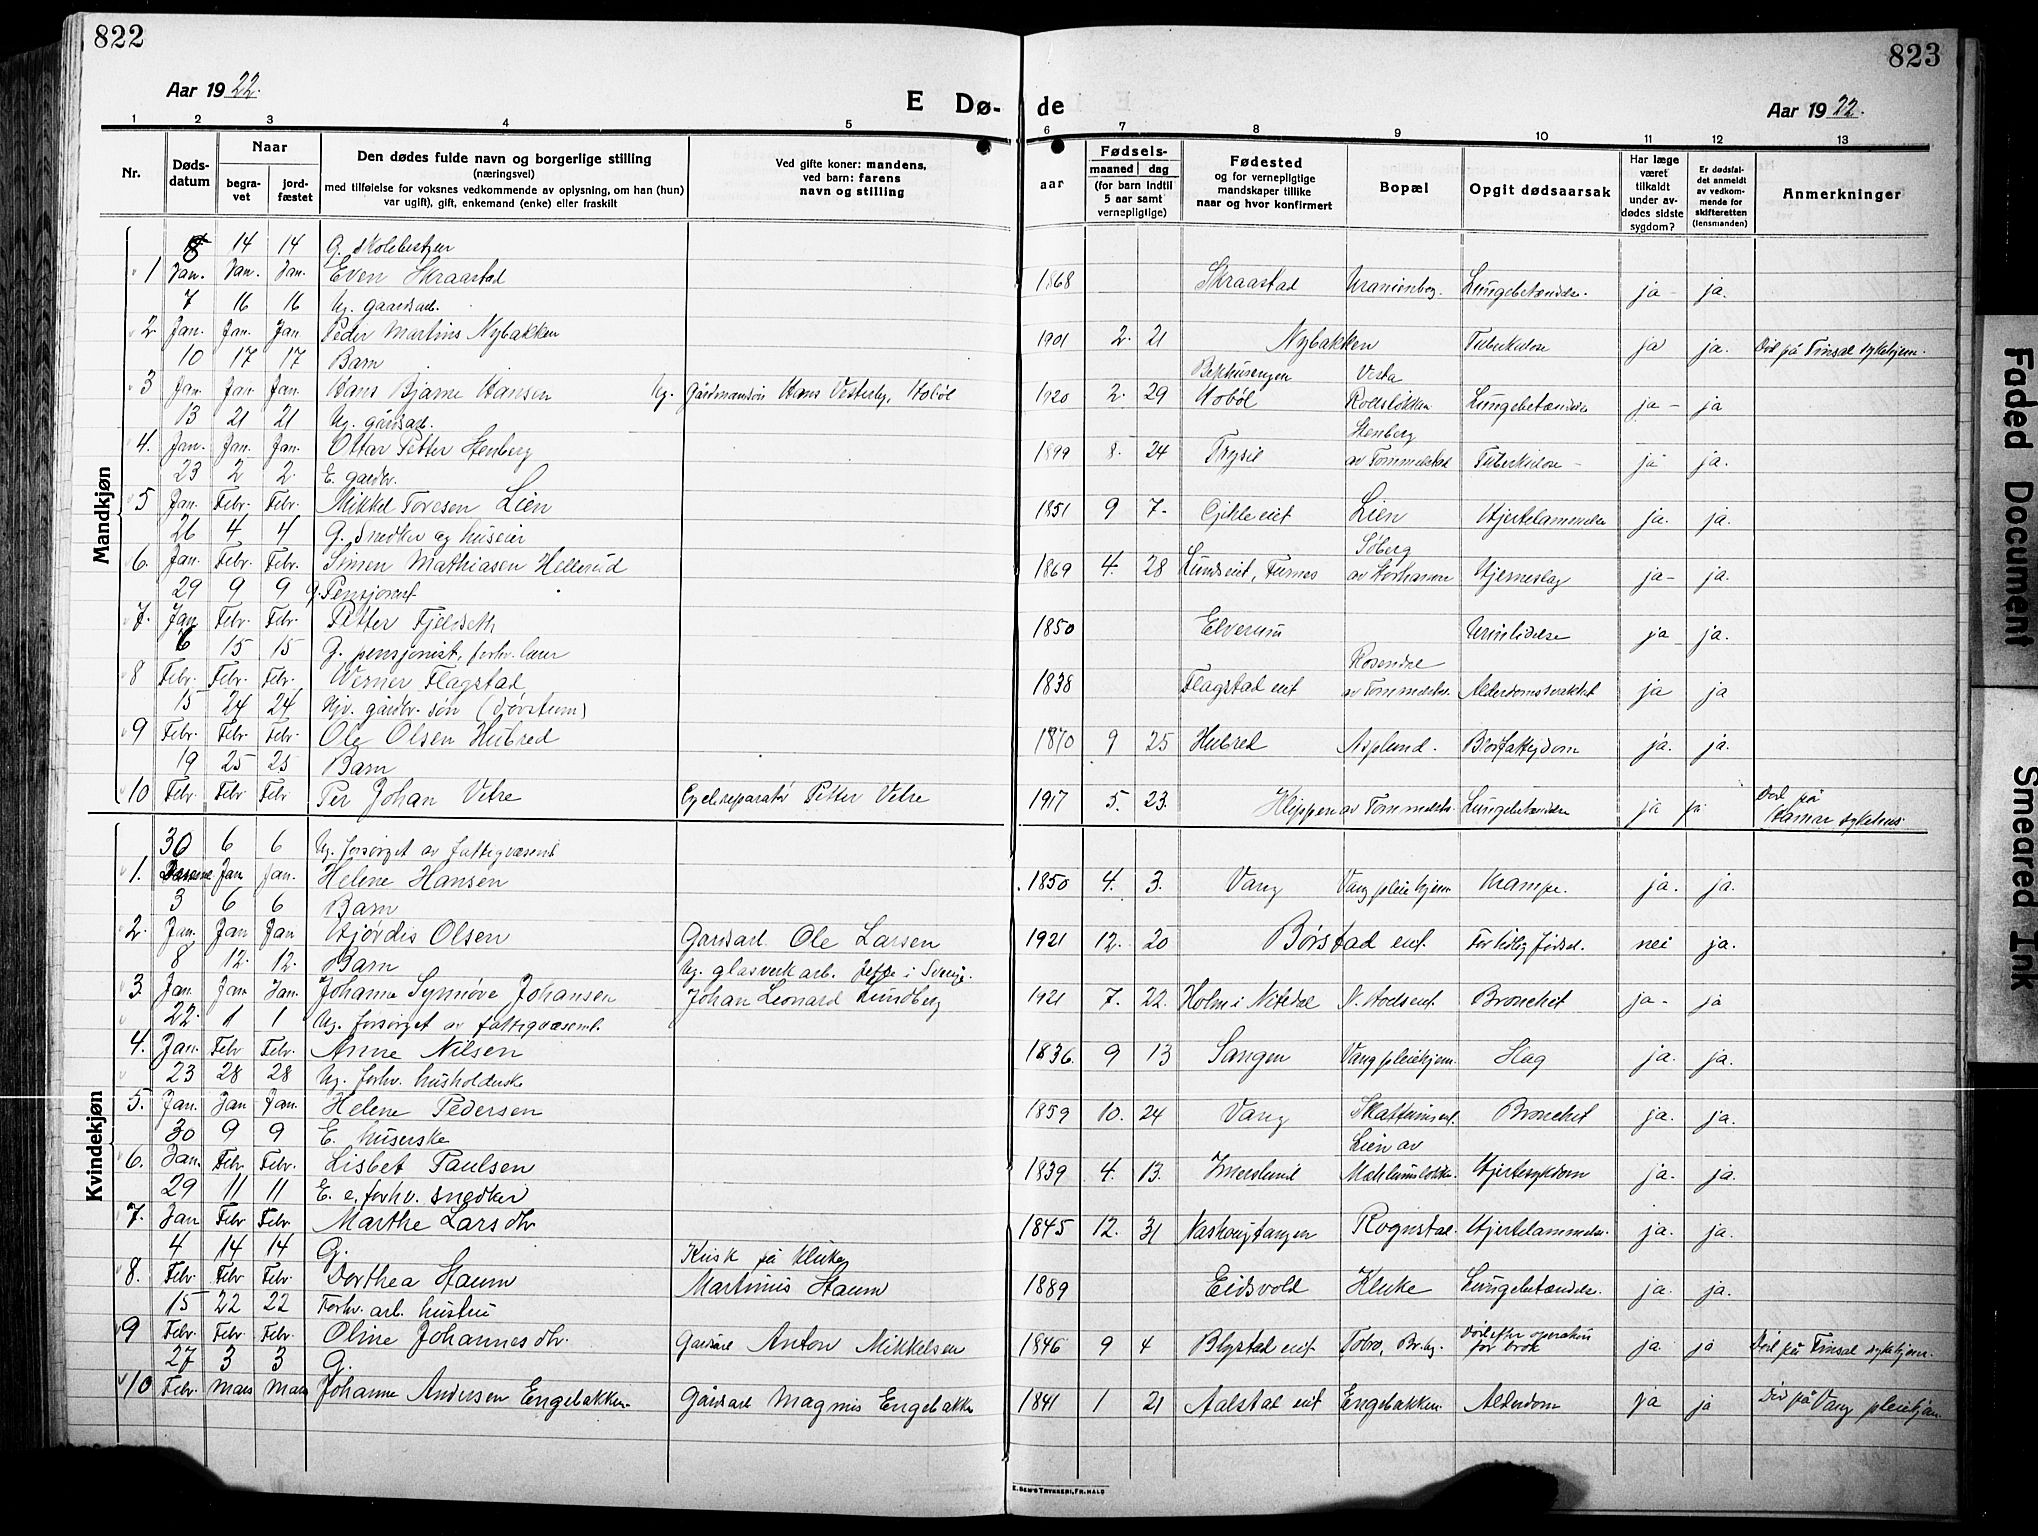 822
823
Aar 1922.
E Dø-
de
Aar 1922.
1 2 3 4 5 6 7 8 9 10 11 12 13
Nr.
Døds-
datum
Naar
begra-
vet
jord-
fæstet
Den dødes fulde navn og borgerlige stilling
(næringsvei)
med tilføielse for voksnes vedkommende av oplysning, om han (hun)
var ugift), gift, enkemand (enke) eller fraskilt
Ved gifte koner: mandens,
ved barn: farens
navn og stilling
aar
Fødsels-
maaned dag
(for barn indtil
5 aar samt
vernepligtige)
Fødested
og for vernepligtige
mandskaper tillike
naar og hvor konfirmert
Bopæl
Opgit dødsaarsak
Har læge
været
tilkaldt
under av-
dødes sidste
sygdom?
Er dødsfal-
det anmeldt
av vedkom-
mende for
skifteretten
(lensmanden)
Anmerkninger
Mandkjøn
8 14 14 G. skolebestyrer
1 Jan. Jan. Jan. Even Skraastad 1868 Skraastad Uranienbog. Lungebetændelse. ja - ja.
7 16 16 Ug. gaardsarb.
2. Jan. Jan. Jan Peder Martins Nybakken 1901 2. 21 Nybakken Tuberkulose ja ja. Død på Finsal sykehjem.
10 17 17 Barn
3 Jan. Jan. Jan. Hans Bjarne Hansen Ug. Gårdmandsøn Hans Vesterby, Stobøl 1920 2. 29 Stobøl Lungebetændelse ja - ja
13 21 21 Ug. gårdsarb.
Stenberg
4. Jan. Jan. Jan. Ottar Petter Stenberg 1899 8. 24 Trysil av Tommelstad Tuberkulose - ja ja.
23 2 2 E. gardbr.
5 Jan. Febr. Febr. Mikkel Toresen Lien 1851 9 7. Gjtle eiet Lien Hjertelammelse ja. ja.
26 4 4 G. Snedker og huseier
Søberg
6. Jan. Febr. Febr. Simen Mathiasen Hellerud 1869 4. 28 Lundseiet, Furnes Hjerneslag ja - ja.
29 9 9 G. Pensjonist
7. Jan Febr. Febr. Petter Fjeldseth 1850 Elverum Urinlidelse ja ja.
6 15 15 G. pensjonist, forhv. lærer
Rosendal
8 Febr. Febr. Febr. Werner Flagstad 1838 Flagstad eiet av Tommelstad Alderdomssvakhet ja ja
15 24 24 Hjv. gardbr. søn (døvstum)
9 Febr. Febr. Febr. Ole Olsen Hubred 1870 9 25 Hubred Asplund. Blodfattigdom ja. ja.
19 25 25 Barn
10 Febr. Febr Febr Per Johan Vetre Cyclereparatør Petter Vetre 1917 5. 23. Klæppen av Tommelsta. Lungebetændelse ja ja Død på
Hamar sykehus
Kvindekjøn
30 6 6 Ug. forsørget av fattigvæsenet
1. Jan Jan. Helene Hansen 1850 4. 3. Vang Vang pleiehjem Krampe. ja. ja.
3 6 6 Barn
2. Jan. Jan Jan Hjørdis Olsen Gardsarb. Ole Larsen 1921 12. 20 Børstad eiet. For tidlig fødsel. nei ja.
8 12. 12. Barn Ug. glasverk arb. i Sverige.
3. Jan. Jan Jan. Johanne Synnøve Johansen Johan Leonard Lundberg 1921 7. 22. Holm i Nitedal N. Stodseiet. Bronchit ja - ja
22. 1 1 Ug. forsørget av fattigvæsenet.
4. Jan. Febr Febr. Anne Nilsen 1836. 9 13 Sangen Vang pleiehjem. Slag ja. ja.
23 28 28 Ug. forhv. husholderske
5. Jan. Jan Jan. Helene Pedersen 1859 10. 24 Vang Skattumseiet. Bronchit ja. ja.
30 9 9 E. huserske
Lien av
6. Jan. Febr Febr. Lisbet Paulsen 1839 4. 13. Imerslund Hjertesykdom ja. ja.
29 11 11 E. e. forhv. snedker
7. Jan Febr Febr Marthe Larsdtr 1845 12. 31 Rognstad. Hjertelammelse. ja. ja.
4 14 14 G. Kusk på Kluke
8. Febr. Febr Febr. Dorthea Staum Martinius Staum 1889 Eidsvold Kluke Lungebetændelse. ja. ja.
15 22 22 Forhv. arb. hustru
9 Febr. Febr. Febr. Oline Johannesdtr. Gardsarb Anton Mikkelsen 1846 9 4 Blystad eiet Død efter operation
for brok ja. ja Død på Finsal sykehjem.
27 3 3 G.
10 Febr. Mars Mars Johanne Andersen Engebakken. Gårdsarb Magnus Engebakken 1841 1 21 Aalstad eiet Engebakken. Alderdom ja ja Død på Vang pleiehjem.
E. SEM'S TRYKKERI, FR.HALD
Faded Document
Smeared Ink